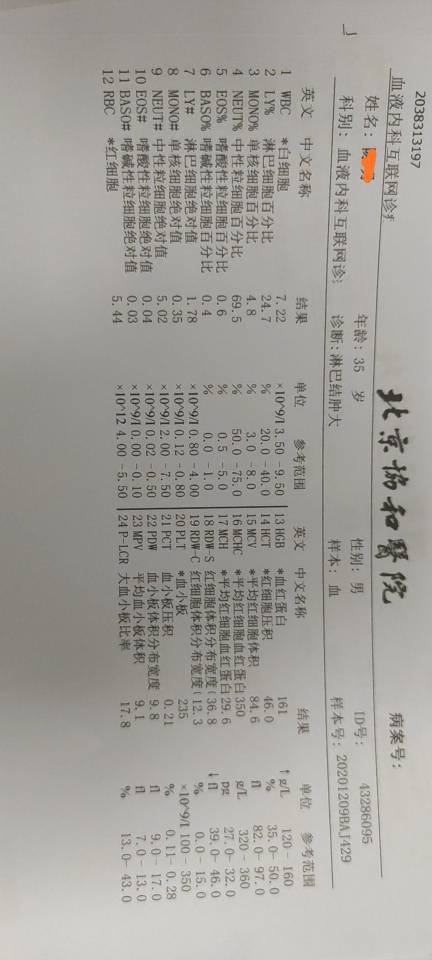 2038313197
北京协和醫院
血液内科互联网诊
病案号:
姓名: 年龄: 35 岁 性别: 男 ID号: 43286095
科别: 血液内科互联网诊 诊断:淋巴结肿大 样本: 血 样本号: 20201209BAJ429
英文 中文名称 结果 单位 参考范围 英文 中文名称 结果 单位 参考范围
1 WBC *白细胞 7.22 ×10^9/l 3.50 -9.50 13 HGB *血红蛋白 161 ↑ g/L 120 - 160
2 LY% 淋巴细胞百分比 24.7 % 20.0 -40.0 14 HCT *红细胞压积 46.0 % 35.0- 50.0
3 MONO% 单核细胞百分比 4.8 % 3.0 -8.0 15 MCV *平均红细胞体积 84.6 fl 82.0- 97.0
4 NEUT% 中性粒细胞百分比 69.5 % 50.0 -75.0 16 MCHC *平均红细胞血红蛋白 350 g/L 320 - 360
5 EOS% 嗜酸性粒细胞百分比 0.6 % 0.5 -5.0 17 MCH *平均红细胞血红蛋白 29.6 pg 27.0- 32.0
6 BASO% 嗜碱性粒细胞百分比 0.4 % 0.0 -1.0 18 RDW-S 红细胞体积分布宽度( 36.8 ↓ fl 39.0- 46.0
7 LY# 淋巴细胞绝对值 1.78 ×10^9/l 0.80 -4.00 19 RDW-C 红细胞体积分布宽度( 12.3 % 0.0 - 15.0
8 MONO# 单核细胞绝对值 0.35 ×10^9/l 0.12 -0.80 20 PLT *血小板 235 ×10^9/l 100 - 350
9 NEUT# 中性粒细胞绝对值 5.02 ×10^9/l 2.00 -7.50 21 PCT 血小板压积 0.21 % 0.11- 0.28
10 EOS# 嗜酸性粒细胞绝对值 0.04 ×10^9/l 0.02 -0.50 22 PDW 血小板体积分布宽度 9.8 fl 9.0 - 17.0
11 BASO# 嗜碱性粒细胞绝对值 0.03 ×10^9/l 0.00 -0.10 23 MPV 平均血小板体积 9.1 fl 7.0 - 13.0
12 RBC *红细胞 5.44 ×10^12 4.00 -5.50 24 P-LCR 大血小板比率 17.8 % 13.0- 43.0